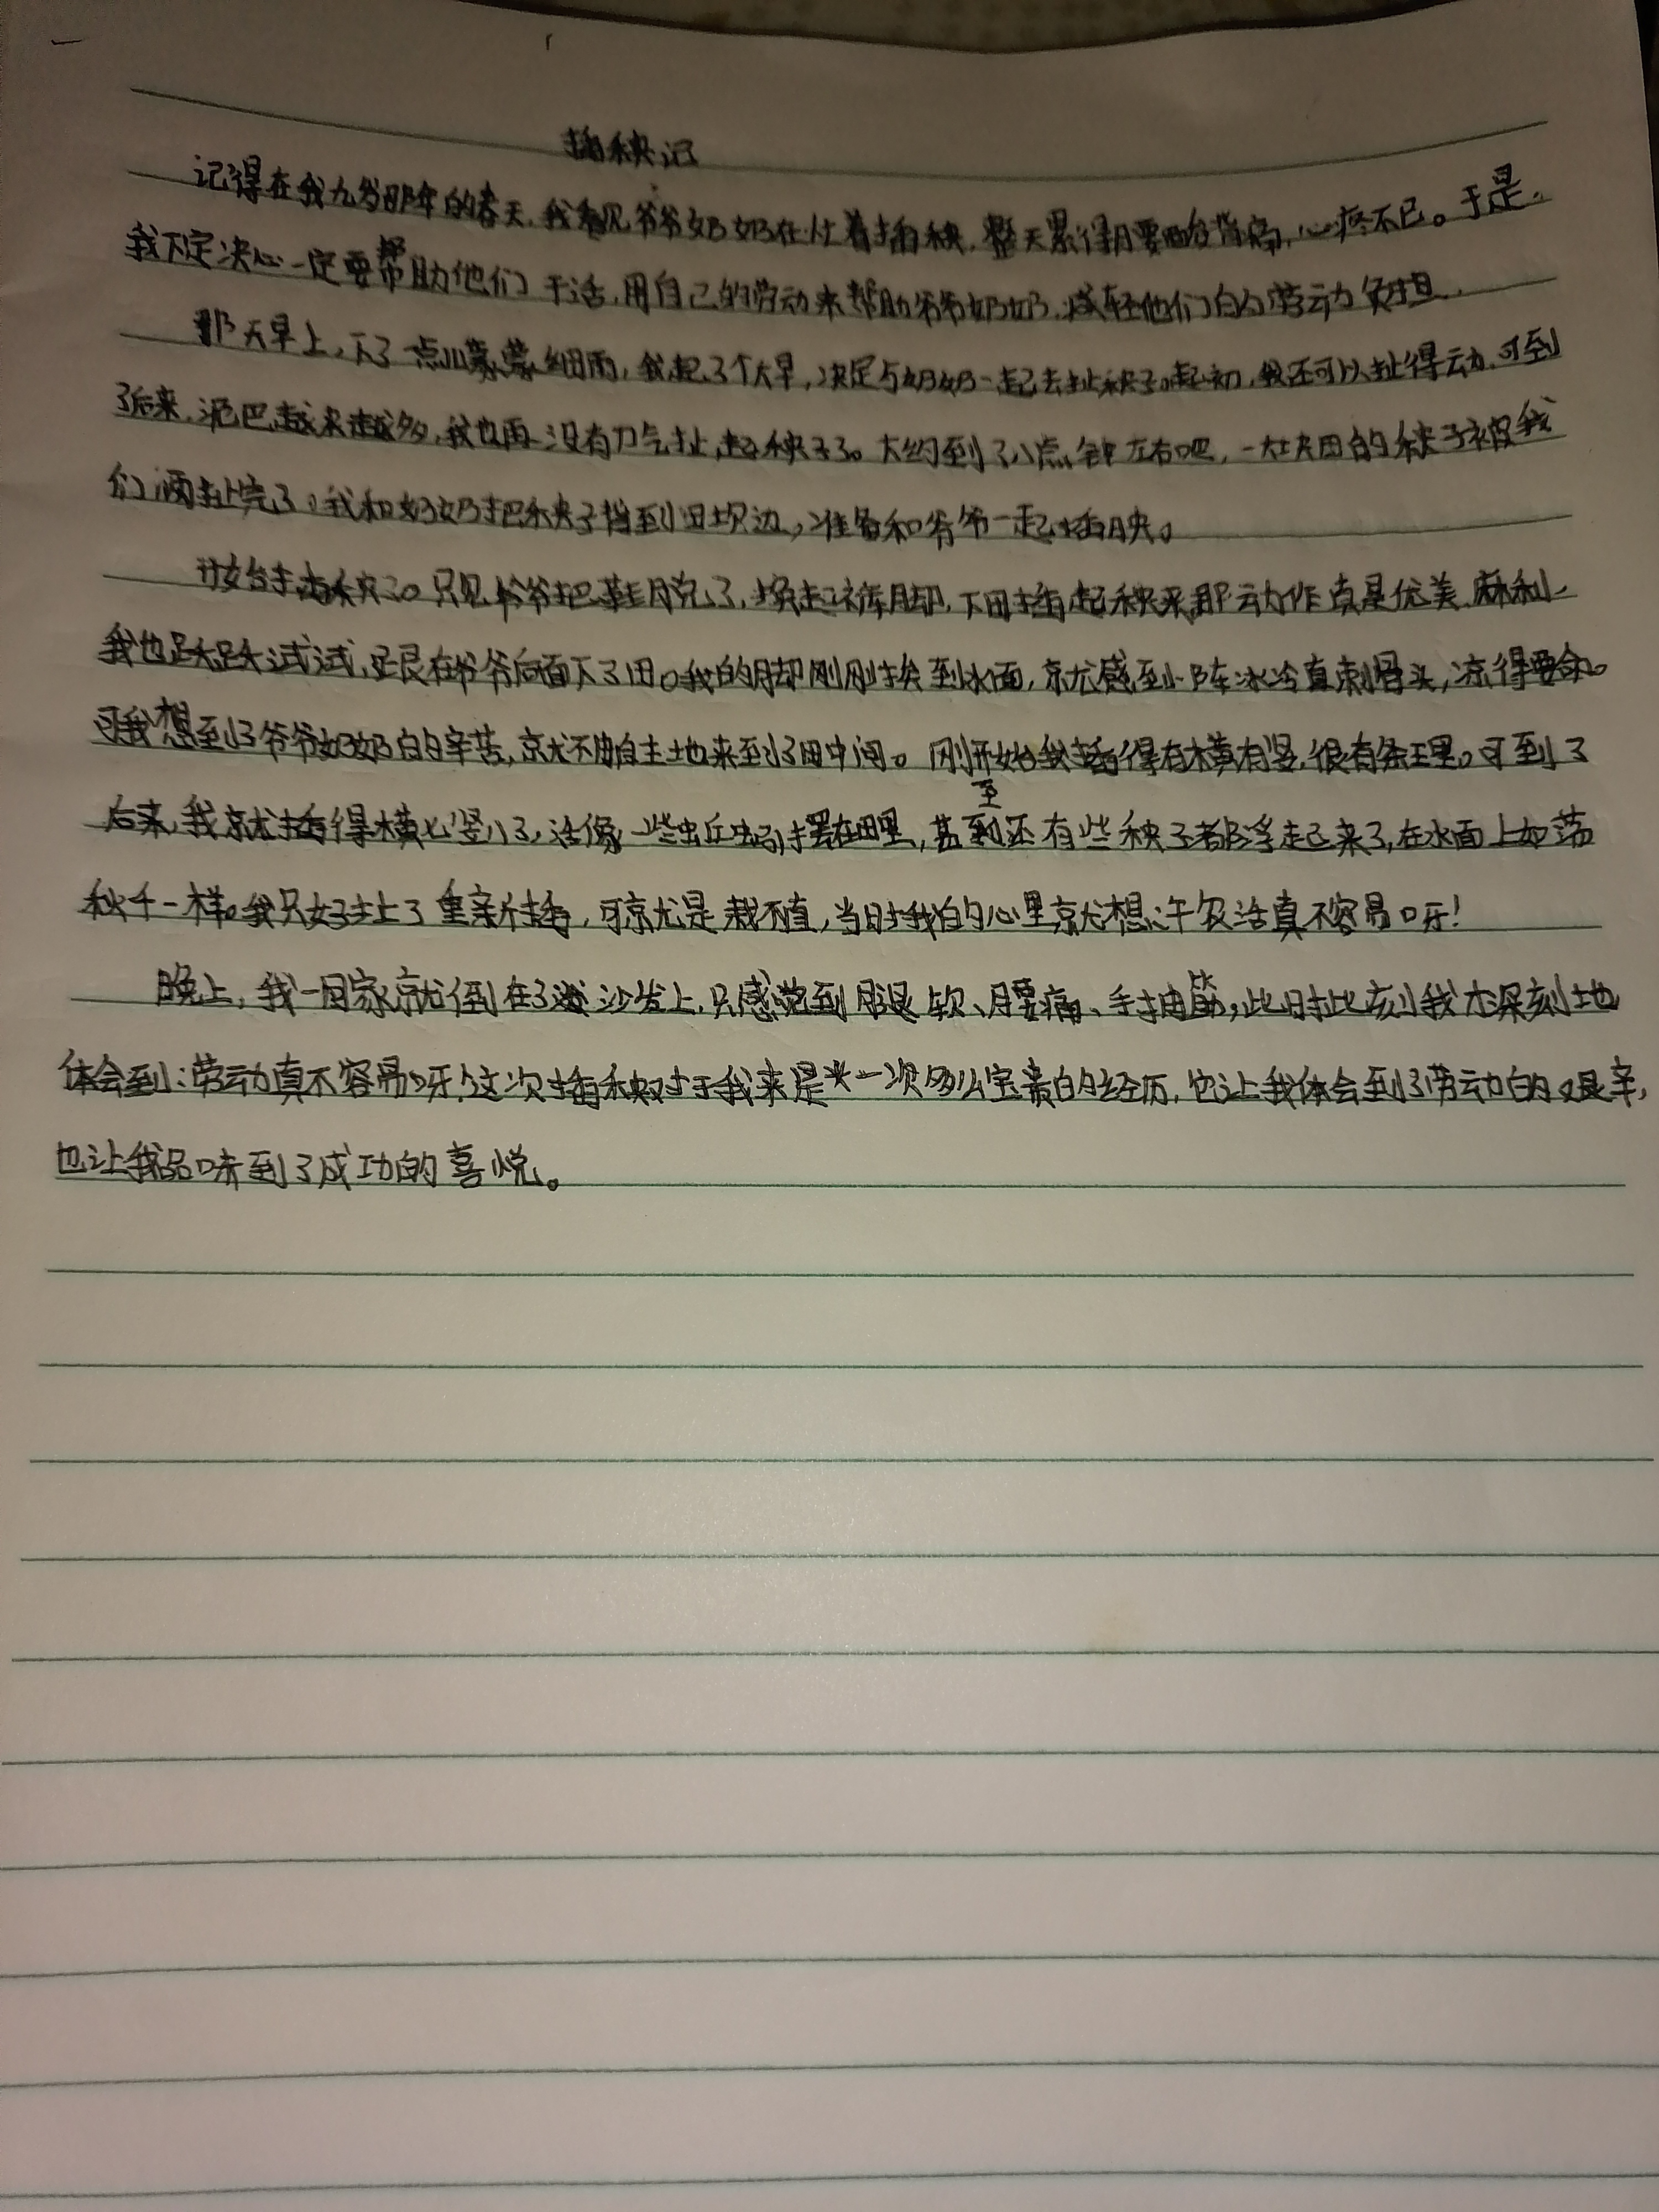 插秧记
记得在我九岁那年的春天,我看见爷爷奶奶在忙着插秧,整天累得腰酸背痛,心疼不已。于是,
我下定决心一定要帮助他们干活,用自己的劳动来帮助爷爷奶奶,减轻他们的劳动负担.
那天早上,下了一点儿蒙蒙细雨,我起了个大早,决定与奶奶一起去扯秧子。起初,我还可以扯得动,可到
了后来,泥巴越来越多,我也再没有力气扯起秧子了。大约到了八点钟左右吧,一大田的秧子被我
们俩扯完了,我和奶奶把秧子担到田坝边,准备和爷爷一起插秧。
开始插秧了。只见爷爷把鞋脱了,挽起裤脚,下田插起秧来那动作真是优美、麻利,
我也跃跃试试,跟在爷爷后面下了田。我的脚刚刚挨到水面,就感到一阵冰冷直刺骨头,凉得要命。
可我想到了爷爷奶奶的辛苦,就不由自主地来到了田中间。刚开始我插得有横有竖,很有条理。可到了
后来,我就插得横七竖八了,活像一些出丘蚂引摆在田里,甚至还有些秧子都浮起来了,在水面上如荡
秋千一样。我只好扯了重新插,可就是栽不直,当时我的心里就想:干农活真不容易呀!
晚上,我一回家就倒在了沙发上,只感觉到腿软、腰痛、手抽筋,此时此刻我才深刻地
体会到:劳动真不容易呀!这次插秧对于我来是一次多么宝贵的经历,也让我体会到了劳动的艰辛,
也让我品味到了成功的喜悦。